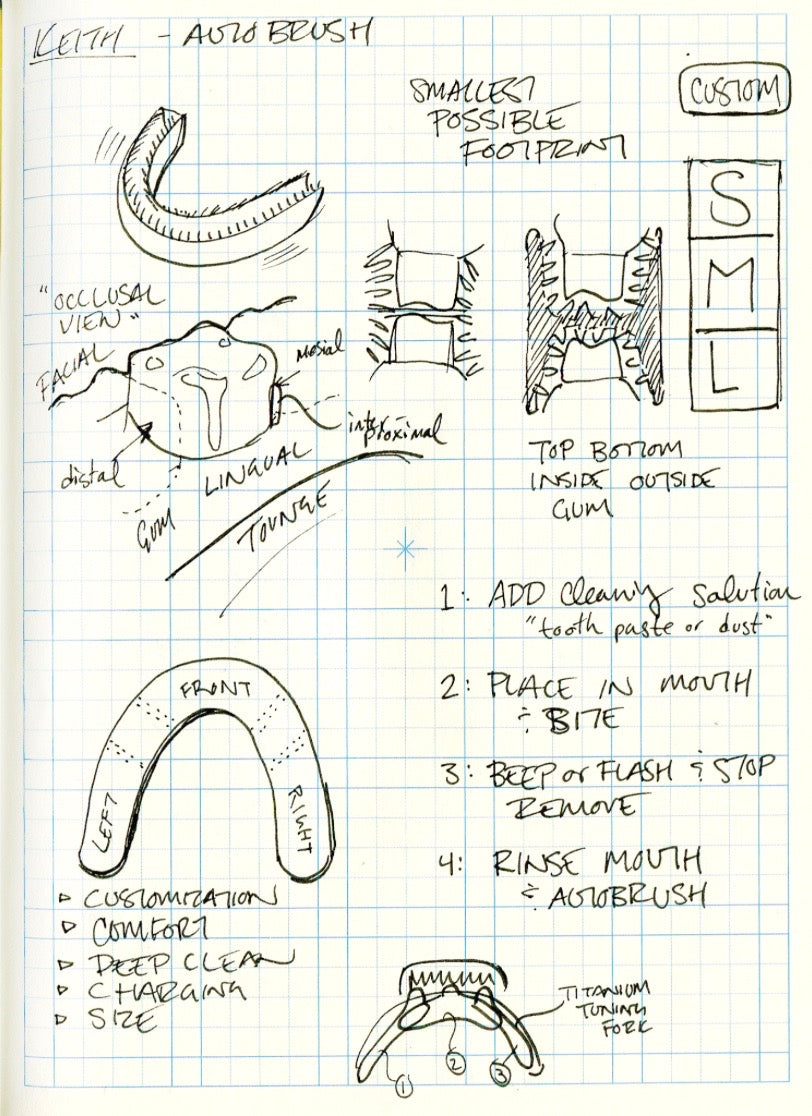 KEITH - AUTOBRUSH
SMALLEST
POSSIBLE
FOOTPRINT
CUSTOM
S
M
L
"OCCLUSAL
VIEW"
FACIAL
mesial
inter-
proximal
distal
LINGUAL
GUM
TOUNGE
TOP BOTTOM
INSIDE OUTSIDE
GUM
1: ADD Cleaning Solution
"tooth paste or dust"
2: PLACE IN MOUTH
& BITE
3: BEEP or FLASH & STOP
REMOVE
4: RINSE MOUTH
& AUTOBRUSH
FRONT
LEFT
RIGHT
▷ CUSTOMIZATION
▷ COMFORT
▷ DEEP CLEAN
▷ CHARGING
▷ SIZE
TITANIUM
TUNING
FORK
1
2
3